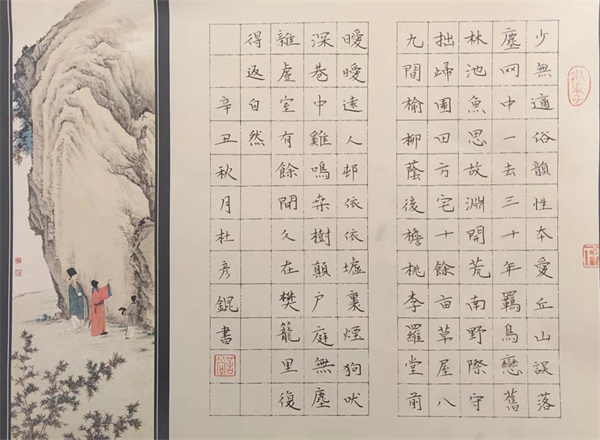 少無適俗韻性本愛丘山誤落
塵网中一去三十年羈鳥戀舊
林池魚思故淵開荒南野際守
拙歸園田方宅十餘亩草屋八
九間榆柳蔭後檐桃李羅堂前
曖曖遠人邨依依墟裏煙狗吠
深巷中雞鳴桒樹顛户庭無塵
雜虛室有餘閒久在樊籠里復
得返自然
辛丑秋月杜彥錕書